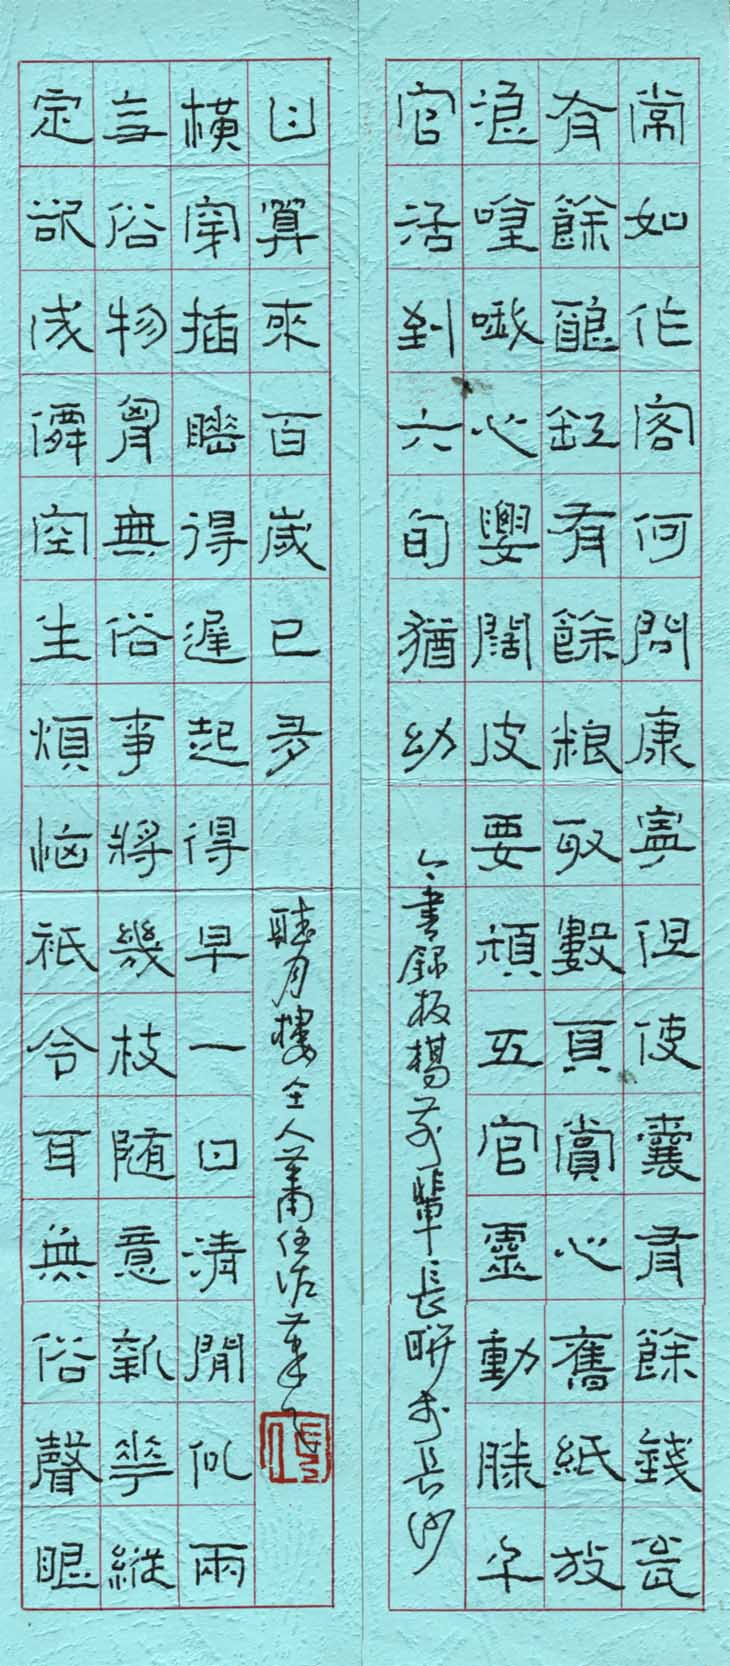 常如作客何問康寧但使囊有餘錢瓮
有餘釀缸有餘粮取數頁賞心舊紙放
浪哦心闊皮要頑五官靈動勝千
官活到六旬猶幼
今書錄板橋前輩長聯於長沙
定欲成僊空生煩惱祇令耳無俗聲眼
无俗物胷無俗事將幾枝隨意新華縱
橫穿插睡得遲起得早一日清閒似兩
日算來百歲已多
聽月樓主人蕭